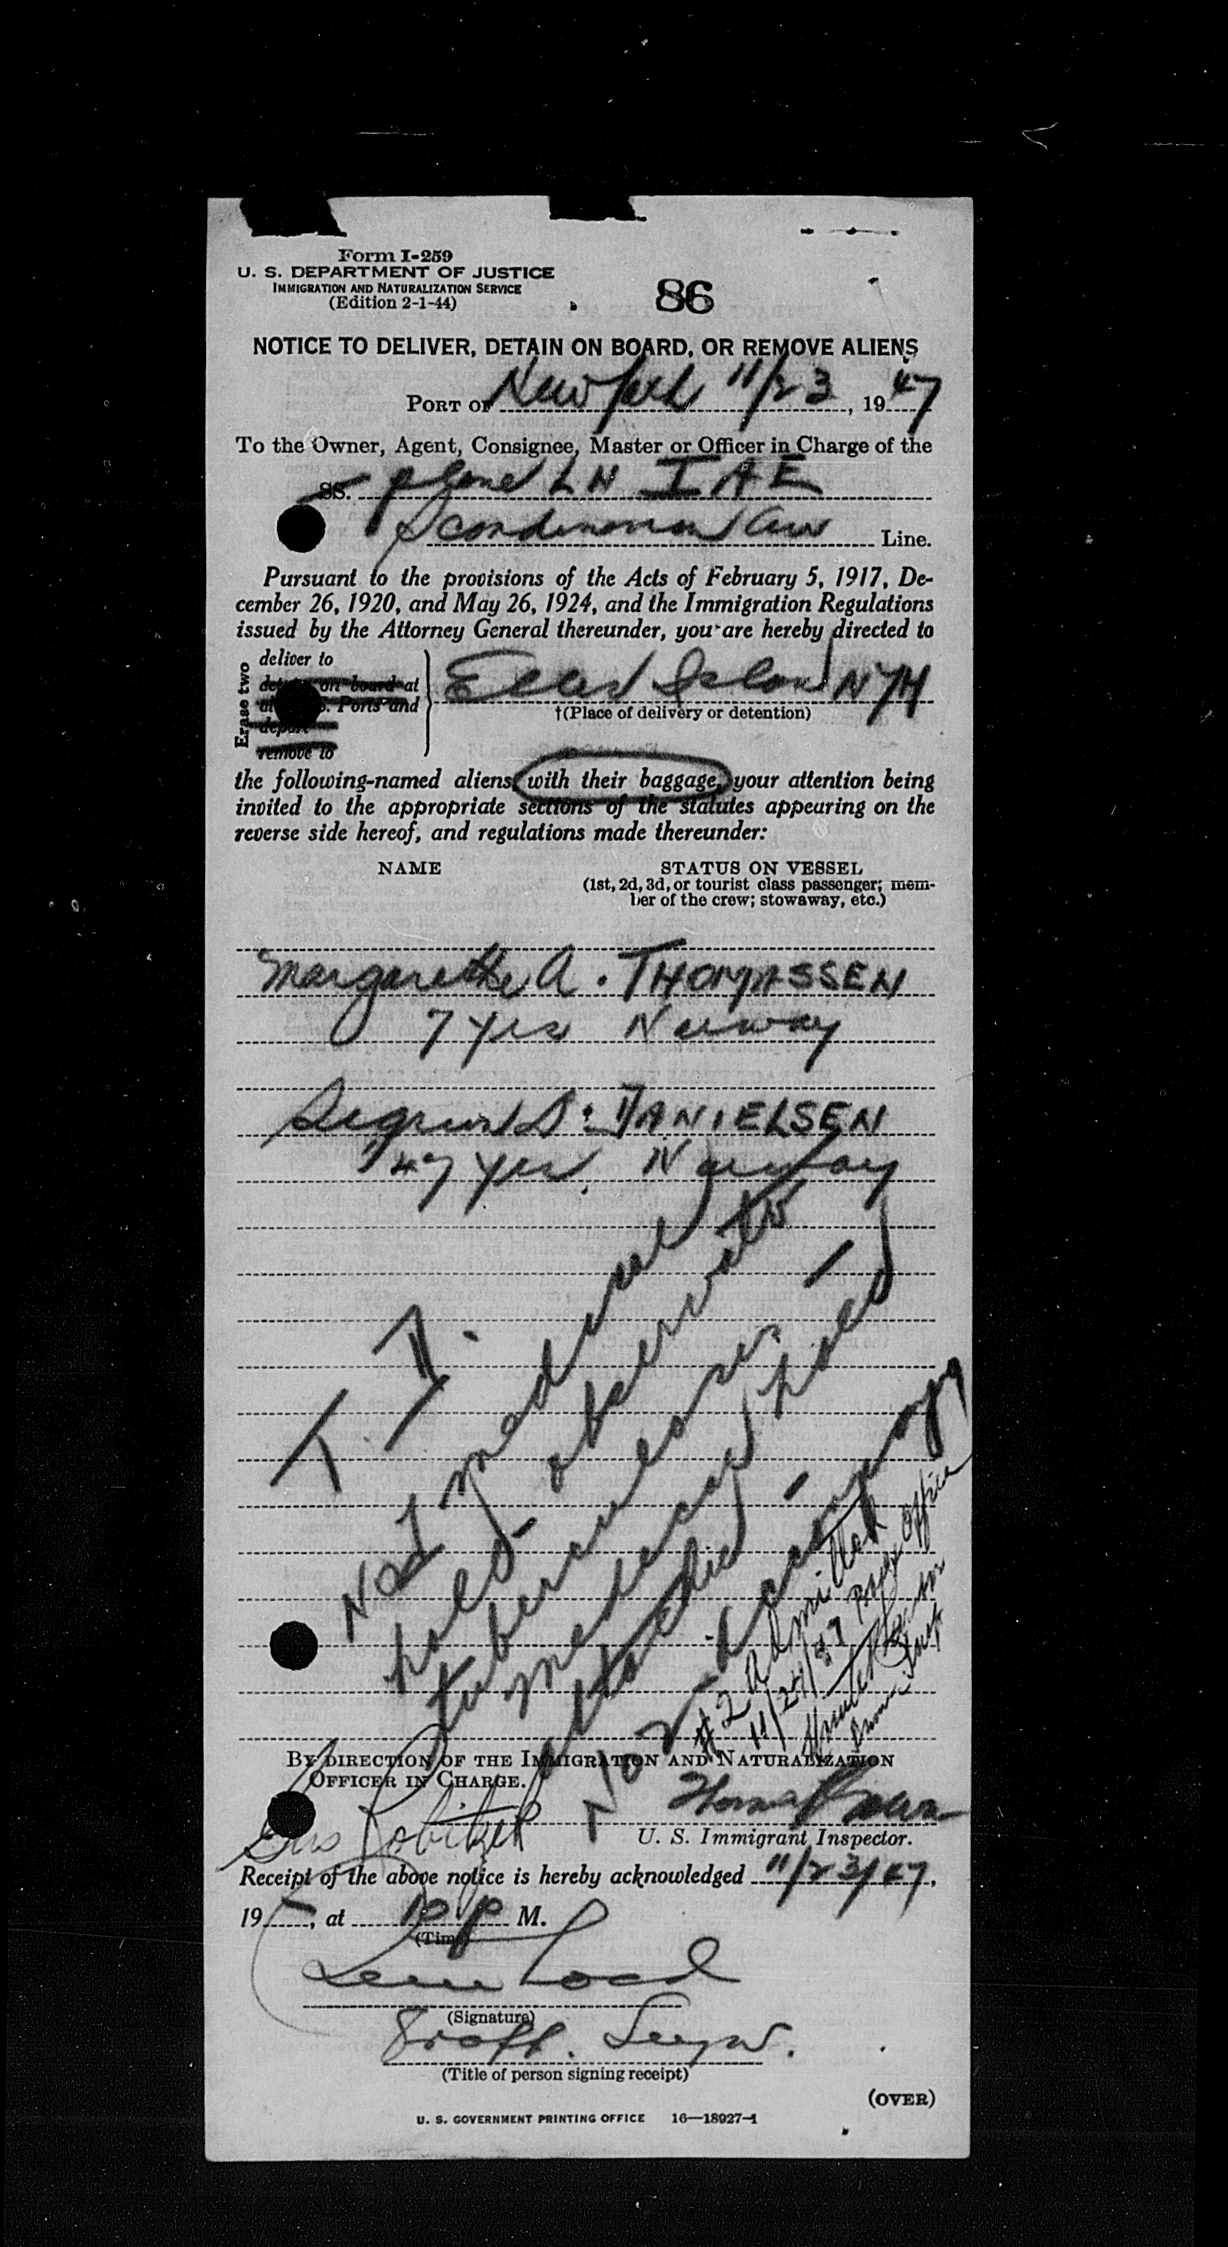 Form I-259
U. S. DEPARTMENT OF JUSTICE
IMMIGRATION AND NATURALIZATION SERVICE
(Edition 2-1-44)
86
NOTICE TO DELIVER, DETAIN ON BOARD, OR REMOVE ALIENS
PORT OF New York 11/23, 1947
To the Owner, Agent, Consignee, Master or Officer in Charge of the
SS. plane LN IAE
Scandinavian Air Line.
Pursuant to the provisions of the Acts of February 5, 1917, De-
cember 26, 1920, and May 26, 1924, and the Immigration Regulations
issued by the Attorney General thereunder, you are hereby directed to
Erase two
deliver to
on board at
Ports and
deport
remove to
Ellis Island NYH
†(Place of delivery or detention)
the following-named aliens, with their baggage, your attention being
invited to the appropriate sections of the statutes appearing on the
reverse side hereof, and regulations made thereunder:
NAME
STATUS ON VESSEL
(1st, 2d, 3d, or tourist class passenger; mem-
ber of the crew; stowaway, etc.)
Margarethe A. THOMASSEN
7 yrs Norway
Sigrund S: DANIELSEN
47 yrs. Norway
T. I.
No 1 medical
hold - observation
tuberculosis
medical hold
attached -
No 2 - accompanying
#2 Admitted
11/24/47 Office
BY DIRECTION OF THE IMMIGRATION AND NATURALIZATION
OFFICER IN CHARGE.
U. S. Immigrant Inspector.
Receipt of the above notice is hereby acknowledged 11/23/47,
19 , at 10 P M.
(Time)
(Signature)
(Title of person signing receipt)
(OVER)
U. S. GOVERNMENT PRINTING OFFICE 16—18927-1